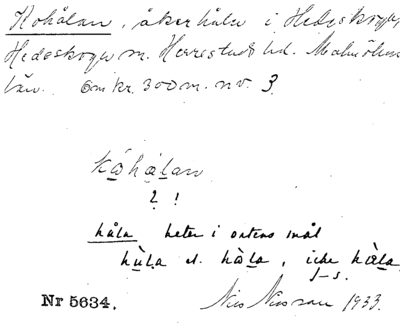 Kohålan, åkerhåla i Hedeskoga,
Hedeskoga sn. Herrestads hd. Malmöhus
län. Omkr. 300 m. nv. 3.
kòhålan
2 !
håla heter i ortens mål
hu̇la el. hòla, icke hàla
J-s.
Nr 5634. Nils Nilsson 1933.